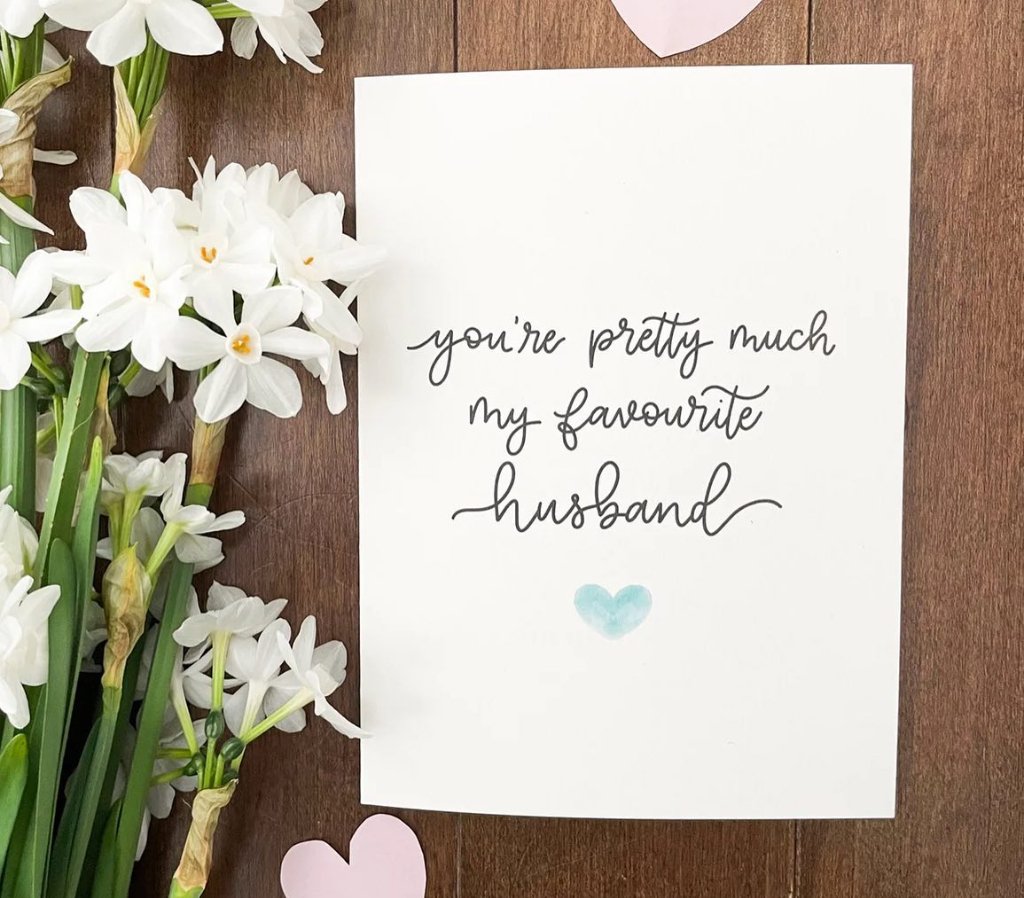 you're pretty much
my favourite
husband